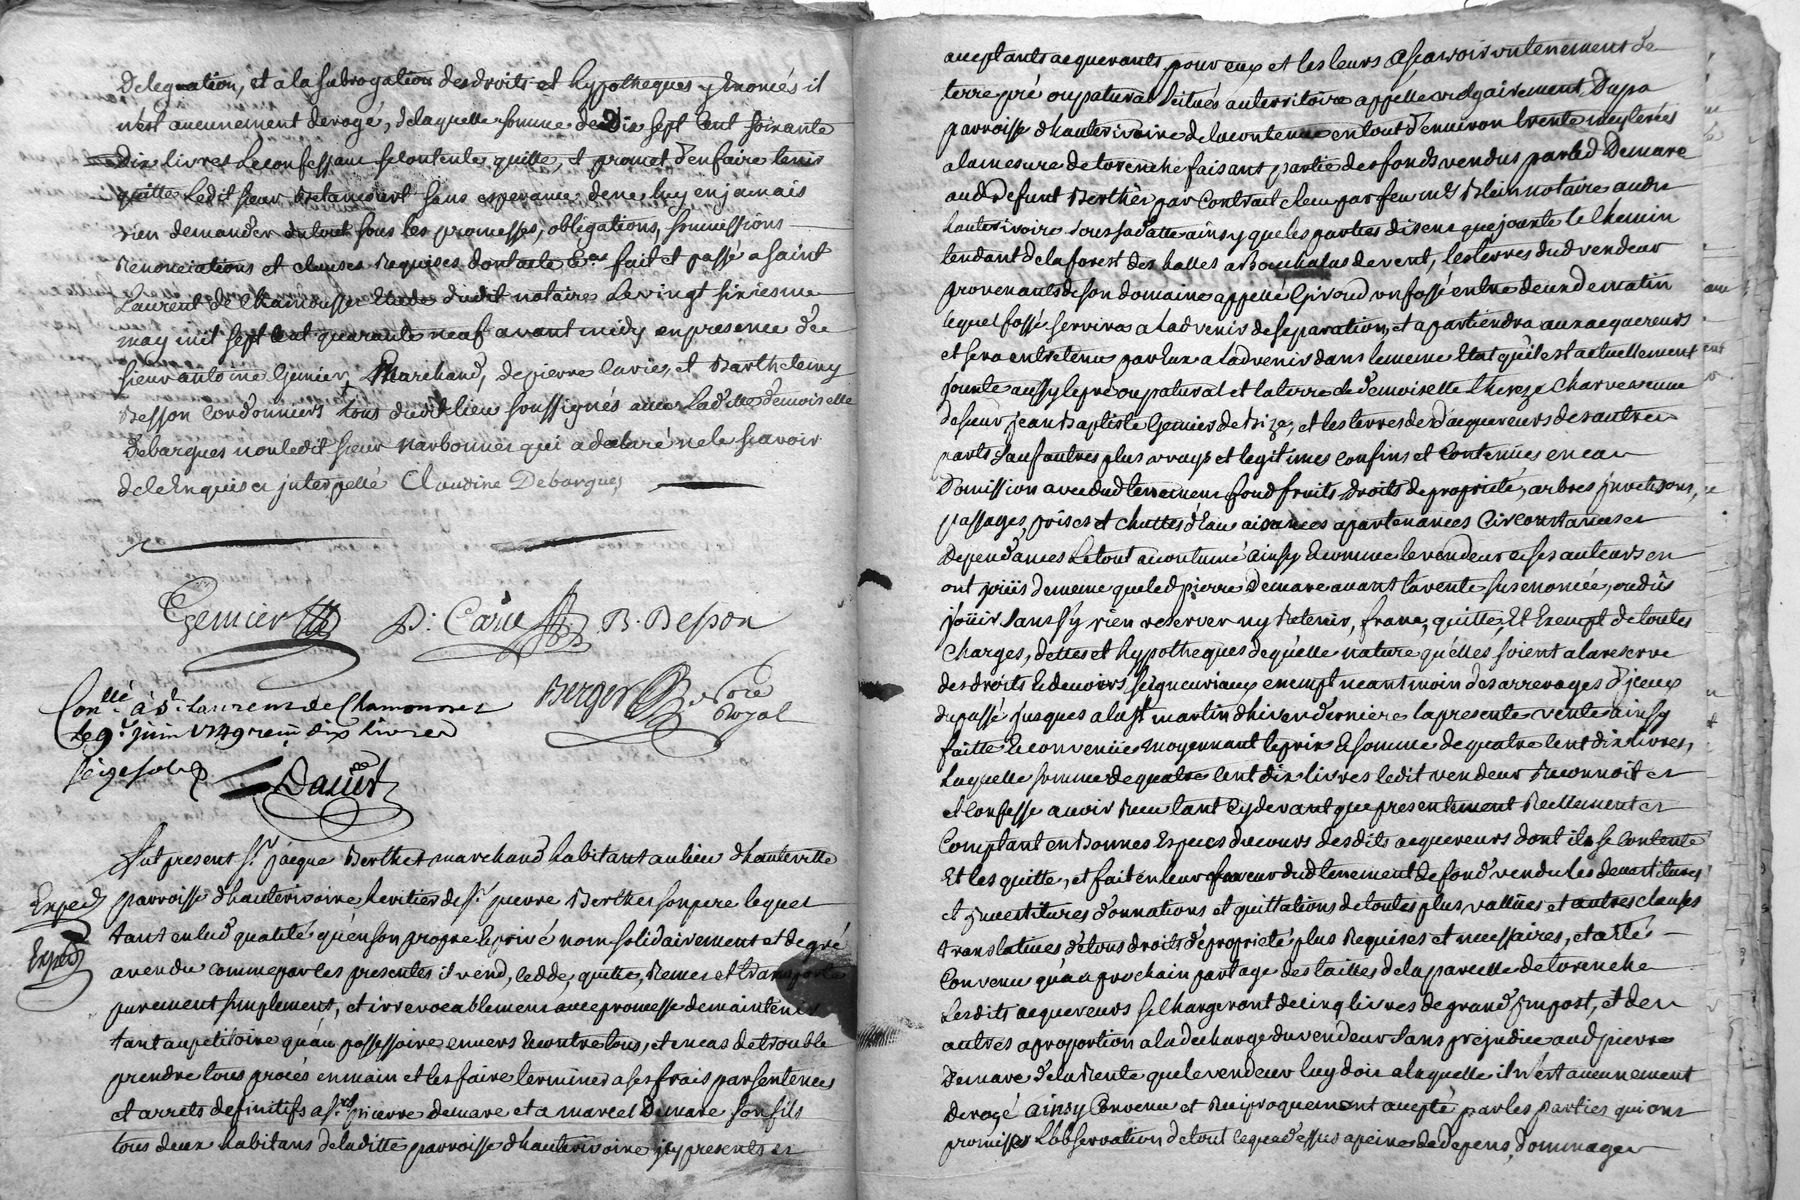 Delegation, et a la subrogation des droits et hypotheques y enoncés il
n'est aucunement derogé, de laquelle somme de Dix sept Cent soixante
Dix livres Le confessant se contente quitte, et promet d'en faire tenir
quitte Ledit sieur Betancourt sans esperance de ne luy en jamais
rien demander du tout sous les promesses, obligations, soumissions
Renonciations et clauses Requises dont acte Ces fait et passé a saint
Laurent de Chamousset Etude dudit notaire Le vingt sixiesme
may mil sept Cent quarante neuf avant midy en presence de
sieur antoine Gemier Marchand, de pierre Carié, et Barthelemy
Besson Cordonniers tous dudit lieu soussignés avec Laditte demoiselle
Debargues non ledit sieur Narbonnes qui a declaré ne le sçavoir
de ce Enquis et interpellé Claudine Debargues
Gemier P. Carié B. Besson
Con.llé à St. Laurens de Chamousset Berger No.re
Le 9e. juin 1749 reçu dix livres Royal
seize sols
Daült
Fut present Sr. jacque Berthet marchand habitant au lieu d'hauteville
Exped parroisse d'hauterivoire heritier de Sr. pierre Berthet son pere lequel
tant en lad qualité qu'en son propre & privé nom solidairement et de gré
Exped a vendu comme par les presentes il vend, cedde, quitte, Remet et transporte
purement simplement, et irrevocablement avec promesse de maintenir
tant au petitoire qu'au possessoire envers & contre tous, et en cas de trouble
prendre tous procés en main et les faire terminer a ses frais par sentences
et arrets definitifs a Srs. pierre demare et a marcel Demare son fils
tous deux habitans de laditte parroisse d'hauterivoire icy presents et
acceptants acquerants pour eux et les leurs Asçavoir un tenement de
terre pré ou patural scitués au territoire appellé vulgairement Dupa
parroisse d'hauterivoire de la contenue en tout d'environ trente meyterées
a la mesure de torenche faisant partie des fonds vendus par led Demare
aud Defunt Berthet par Contrait Receu par feu me. Blein notaire audit
hauterivoire sous sa datte ainsy que les parties disent que jouxte le Chemin
tendant de la forest des halles a Bouchalas de vent, les terres dud vendeur
provenants de son domaine appellé Giroud un fossé entre deux de matin
lequel fossé servira a L'advenir de separation, et apartiendra aux acquereurs
et sera entretenu par Eux a L'advenir dans le meme Etat qu'il est actuellement
jouxte aussy le pré ou patural et la terre de demoiselle Thereze Charve veuve
de sieur jean Baptiste Gemier de Bize, et les terres desd acquereurs des autres
parts sauf autres plus vrays et legitimes confins et Contenües en cas
D'omission avec dud tenement fond fruits droits de proprieté, arbres y ,
passages, prises et chuttes d'Eau aisances apartenances Circonstances et
dependances Le tout accoutumé ainsy & comme le vendeur & ses auteurs en
ont joüis de meme que led pierre Demare avant la vente susenoncée, ou dûs
joüir sans s'y rien reserver ny Retenir, franc, quitte, Et Exempt de toutes
Charges, dettes et hypotheques de quelle nature qu'elles soient a la reserve
des droits & devoirs seigneuriaux exempt neantmoin des arrerages d'jceux
du passé jusques a la St martin d'hiver derniere la presente vente ainsy
faitte & convenüe moyennant le prix & somme de quatre Cent dix livres,
Laquelle somme de quatre Cent dix livres ledit vendeur Reconnoit et
et Confesse avoir Reçu tant Cy devant que presentement Reellement et
Comptant en Bonnes Especes du cours desdits acquereurs dont il se contente
Et les quitte, et fait en leur faveur dud tenement de fond vendu les devestitures
et investitures donnations et quittations de toutes plus vallües et autres clauses
translatives de tous droits de proprieté plus Requises et necessaires, et a eté
Convenu qu'au prochain partage des tailles de la parcelle de torenche
Lesdits acquereurs se chargeront de cinq livres de grand impost, et des
autres a proportion a la decharge du vendeur sans prejudice aud pierre
Demare de la Rente que le vendeur luy doit a laquelle il n'est aucunement
derogé ainsy Convenu et Reciproquement accepté par les parties qui ont
promises L'observation de tout ce que dessus a peine de depens, dommages